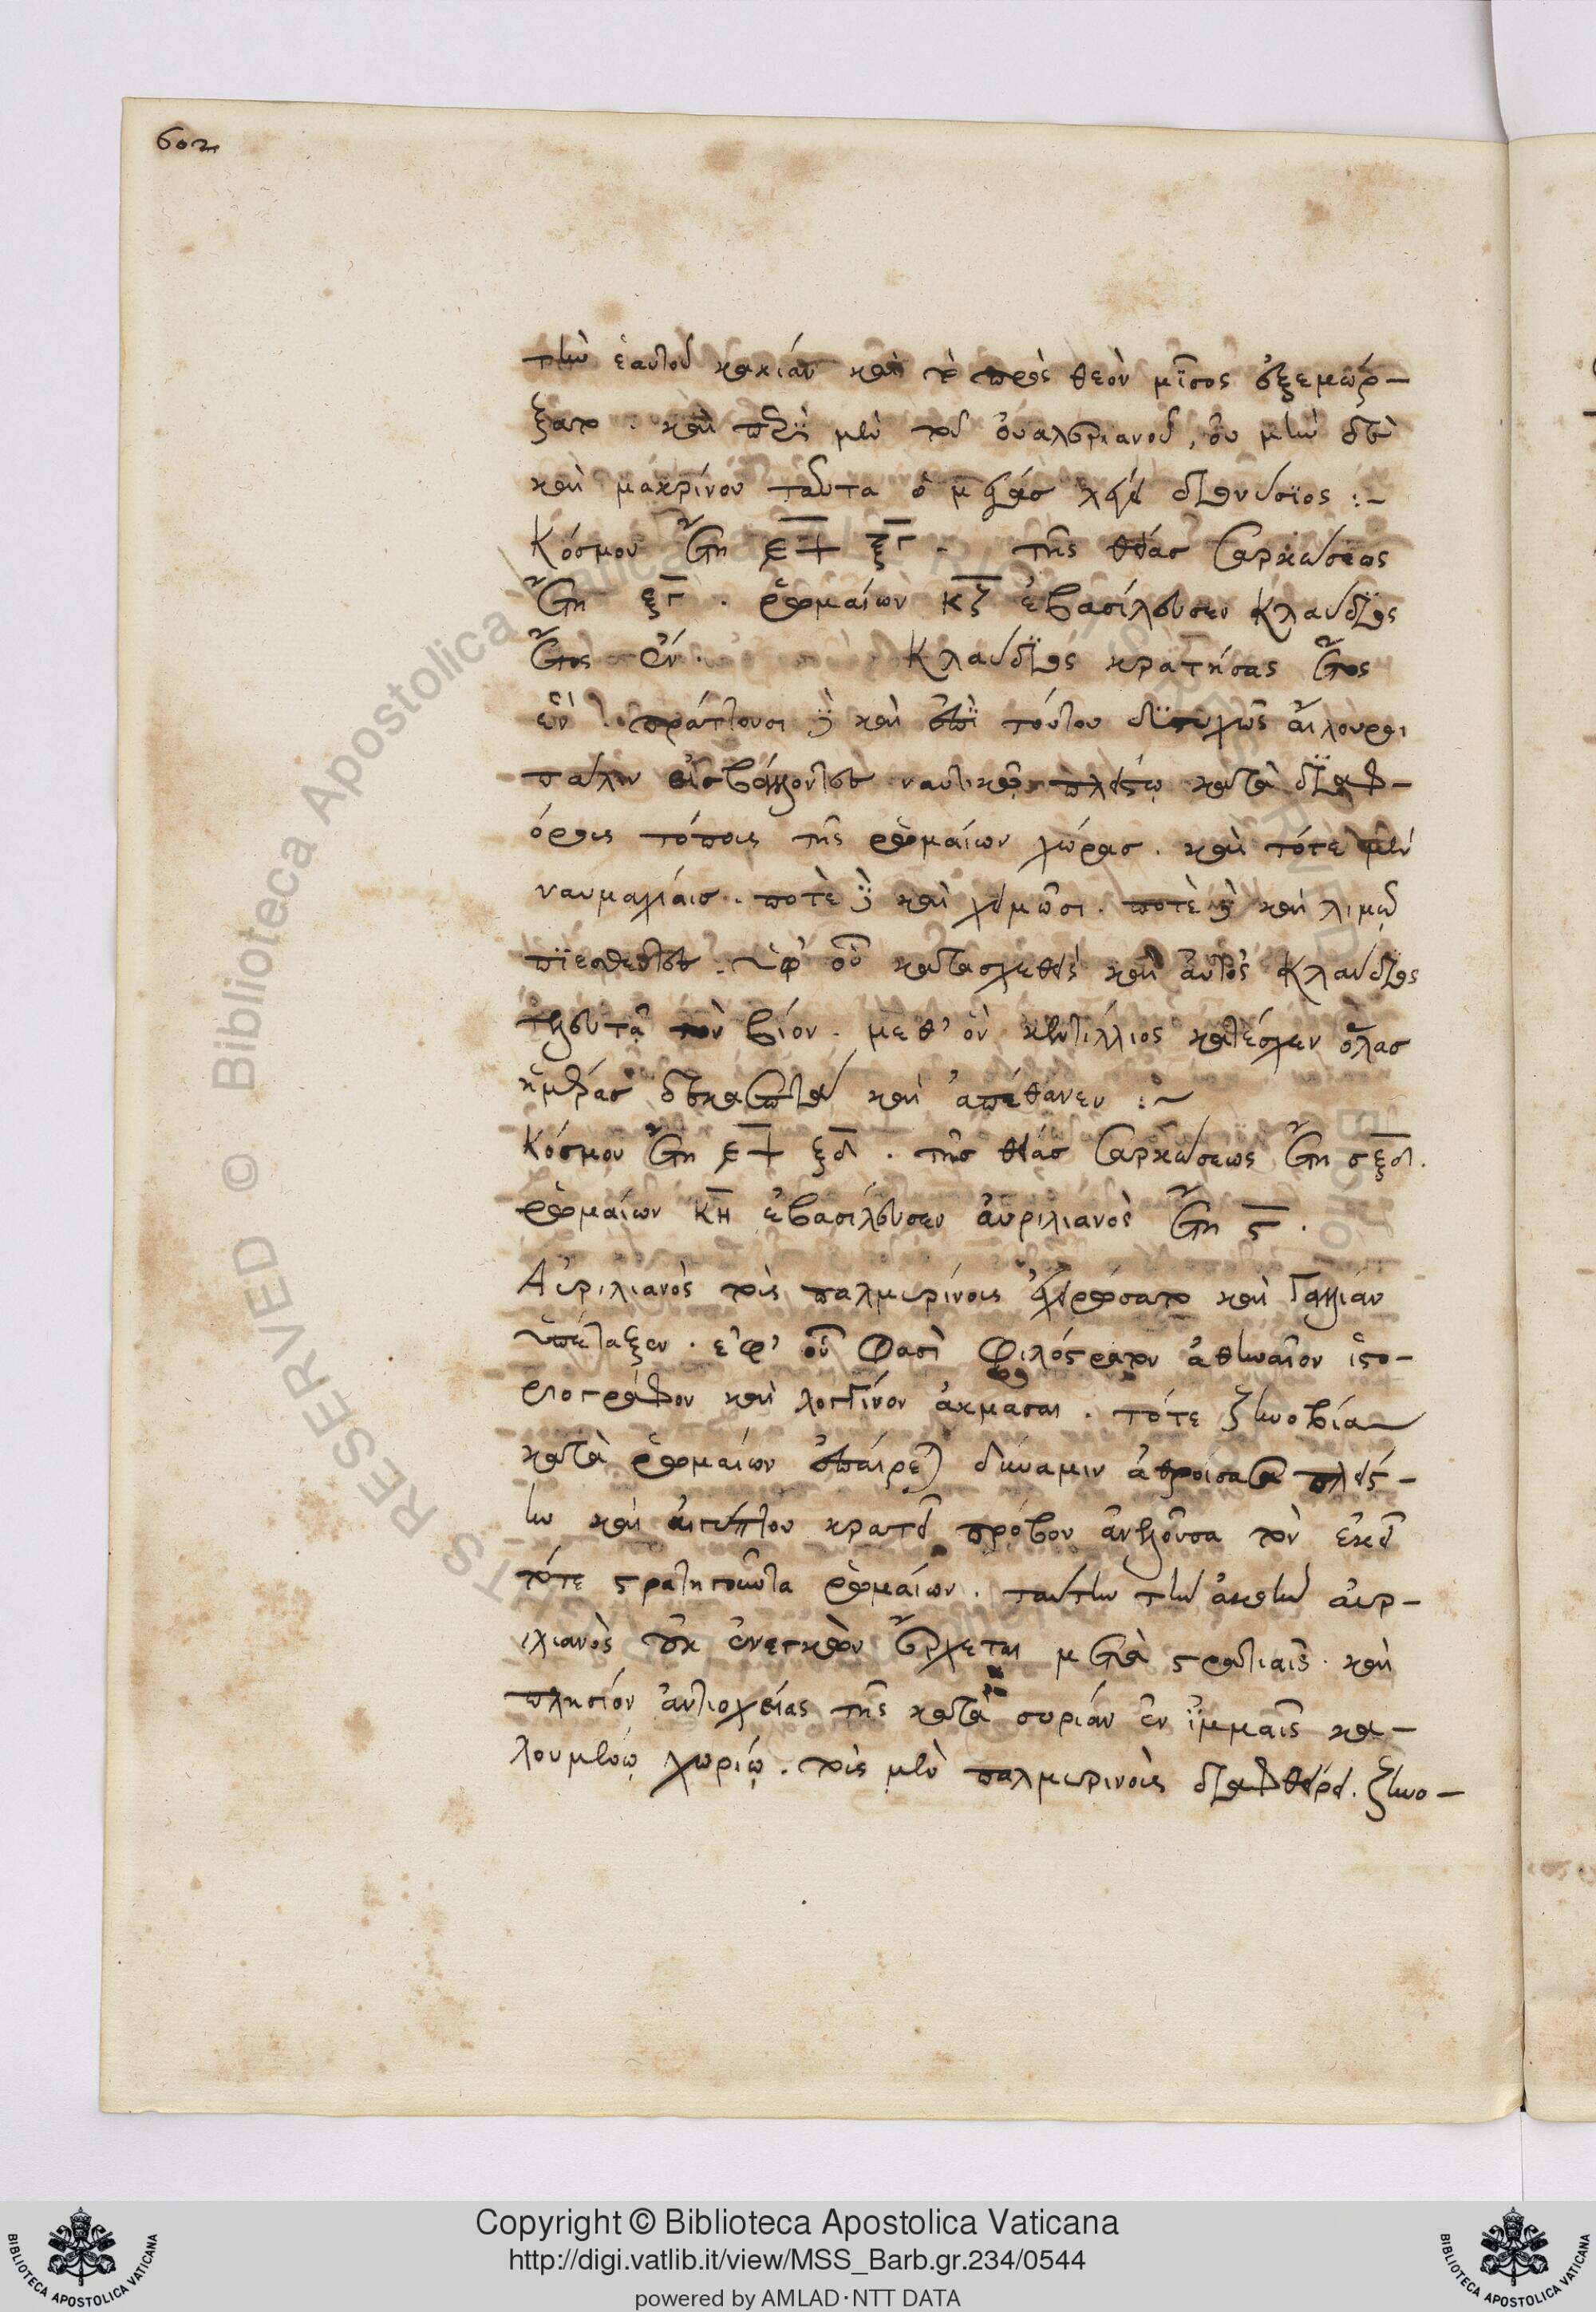 602
τὴν ἑαυτοῦ κακίαν καὶ τὸ πρὸς θεὸν μῖσος ἐξεμωρ-
ξατο . καὶ περὶ μὲν τοῦ οὐαλεριανοῦ, οὐ μὴν δὲ
καὶ μακρίνου ταῦτα ὁ μέγας λέγει διονύσιος :-
Κόσμου ἔτη ξγ . τῆς θείας σαρκώσεως
ἔτη ξγ . ῥωμαίων κζ ἐβασίλευσεν κλαύδιος
ἔτος ἕν . Κλαύδιος κρατήσας ἔτος
ἓν . πράττουσι δὲ καὶ ἐπὶ τούτου δυστυχῶς αἴλουροι
πάλιν εἰσβάλλοντες ναυτικῷ πλείστῳ κατὰ διαφ-
όροις τόποις τῆς ῥωμαίων χώρας . καὶ τότε μὲν
ναυμαχίαις . ποτὲ δὲ καὶ χειμῶσι . ποτὲ δὲ καὶ λιμῷ
πϊεσθεντες . ὑφ' οὗ κατασχεθεὶς καὶ αὐτὸς κλαύδιος
τελευτᾷ τὸν βίον . μεθ' ὃν κυντίλλιος κατέσχεν ὅλας
ἡμέρας δεκαεπτὰ καὶ ἀπέθανεν :~
Κόσμου ἔτη ξδ . τῆς θείας σαρκώσεως ἔτη σξδ.
ῥωμαίων κη ἐβασίλευσεν αὐριλιανὸς ἔτη ς .
Αὐριλιανὸς τοὺς παλμυρίνους ἐχειρώσατο καὶ Γαλλίαν
ὑπέταξεν . ἐφ' οὗ φασὶ φιλόστρατον ἀθηναῖον ἱστο-
ριογράφον καὶ λογγῖνον ἀκμᾶσαι . τότε ζηνοβία
κατὰ ῥωμαίων ἐπαίρεται δύναμιν ἀθροίσασα πλείσ-
ην καὶ αἰγύπτου κρατεῖ πρόβον ἀνελοῦσα τὸν ἐκεῖ
τότε στρατηγοῦντα ῥωμαίων . ταύτην τὴν ἀκοὴν αὐρ-
ιλιανὸς οὐκ ἐνεγκὼν ἔρχεται μετὰ στρατιαῖς . καὶ
πλησίον ἀντιοχείας τῆς κατὰ συρίαν ἐν ἵμμαις κα-
λουμένῳ χωρίῳ . τοὺς μὲν παλμυρινοὺς διαφθείρει . ζηνο-
Copyright © Biblioteca Apostolica Vaticana
http://digi.vatlib.it/view/MSS_Barb.gr.234/0544
powered by AMLAD·NTT DATA
BIBLIOTECA APOSTOLICA VATICANA
BIBLIOTECA APOSTOLICA VATICANA